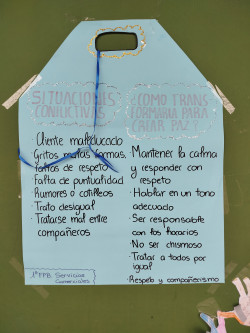 SITUACIONES
CONFLICTIVAS
· Cliente maleducado
· Gritos malas formas.
· Faltas de respeto
· Falta de puntualidad
· Rumores o cotilleos
· Trato desigual
· Tratarse mal entre
compañeros
1º FPB Servicios
Comerciales
¿COMO TRANS
FORMARIA PARA
CREAR PAZ?
· Mantener la calma
y responder con
respeto
· Hablar en un tono
adecuado
· Ser responsable
con los horarios
· No ser chismoso
· Tratar a todos por
igual
· Respeto y compañerismo